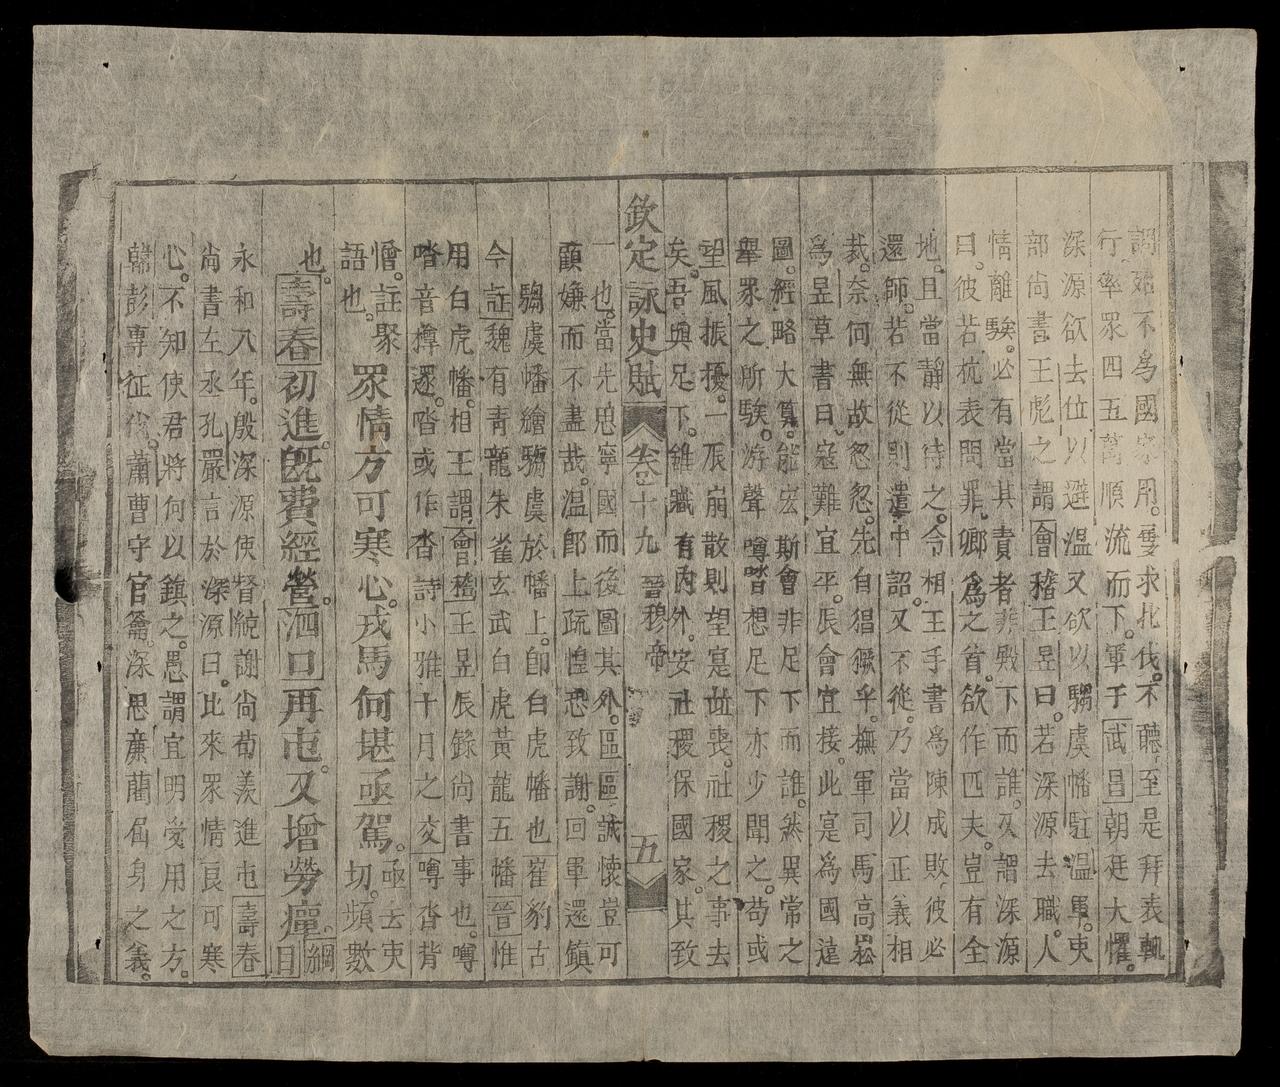 謂始不爲國家用。要求北伐。不聽至是拜表輒
行率眾四五萬順流而下。軍于武昌朝廷大懼。
深源欲去位以避溫又欲以騶虞幡駐溫軍。吏
部尚書王彪之謂會稽王昱曰。若深源去職。人
情離駭。必有當其責者非殿下而誰。又謂深源
曰。彼若抗表問罪。卿爲之首。欲作匹夫。豈有全
地。且當靜以待之。令相王手書爲陳成敗彼必
還師。若不從則遣中詔。又不從。乃當以正義相
裁。奈何無故忽忽。先自猖獗乎。撫軍司馬高崧
爲昱草書曰。寇難宜平。辰會宜接。此寔爲國遠
圖。經略大算。能宏斯會非足下而誰。然異常之
舉眾之所駭。游聲噂㗳想足下亦少聞之。苟或
望風振擾。一辰崩散則望寔並喪。社稷之事去
矣。吾與足下。雖職有內外。安社稷保國家。其致
欽定詠史賦 卷之十九 晉穆帝 五
一也。當先思寧國而後圖其外。區區誠懷豈可
顧嫌而不盡哉。溫郎上疏惶恐致謝。回軍還鎮
騶虞幡繪騶虞於幡上。即白虎幡也崔豹古
今註魏有青龍朱雀玄武白虎黃龍五幡晉惟
用白虎幡。相王謂會稽王昱辰錄尚書事也。噂
㗳音樽遝。㗳或作沓詩小雅十月之交噂沓背
憎。註聚
語也。
眾情方可寒心。戎馬何堪亟駕。
亟去吏
切。頻數
也。
壽春初進。既費經營。泗口再屯。又增勞癉。
綱
目
永和八年。殷深源使督統謝尚荀羨進屯壽春
尚書左丞孔嚴言於深源曰。比來眾情良可寒
心。不知使君將何以鎮之。愚謂宜明受用之方。
韓彭專征伐。蕭曹守官籥。深思廉藺屈身之義。